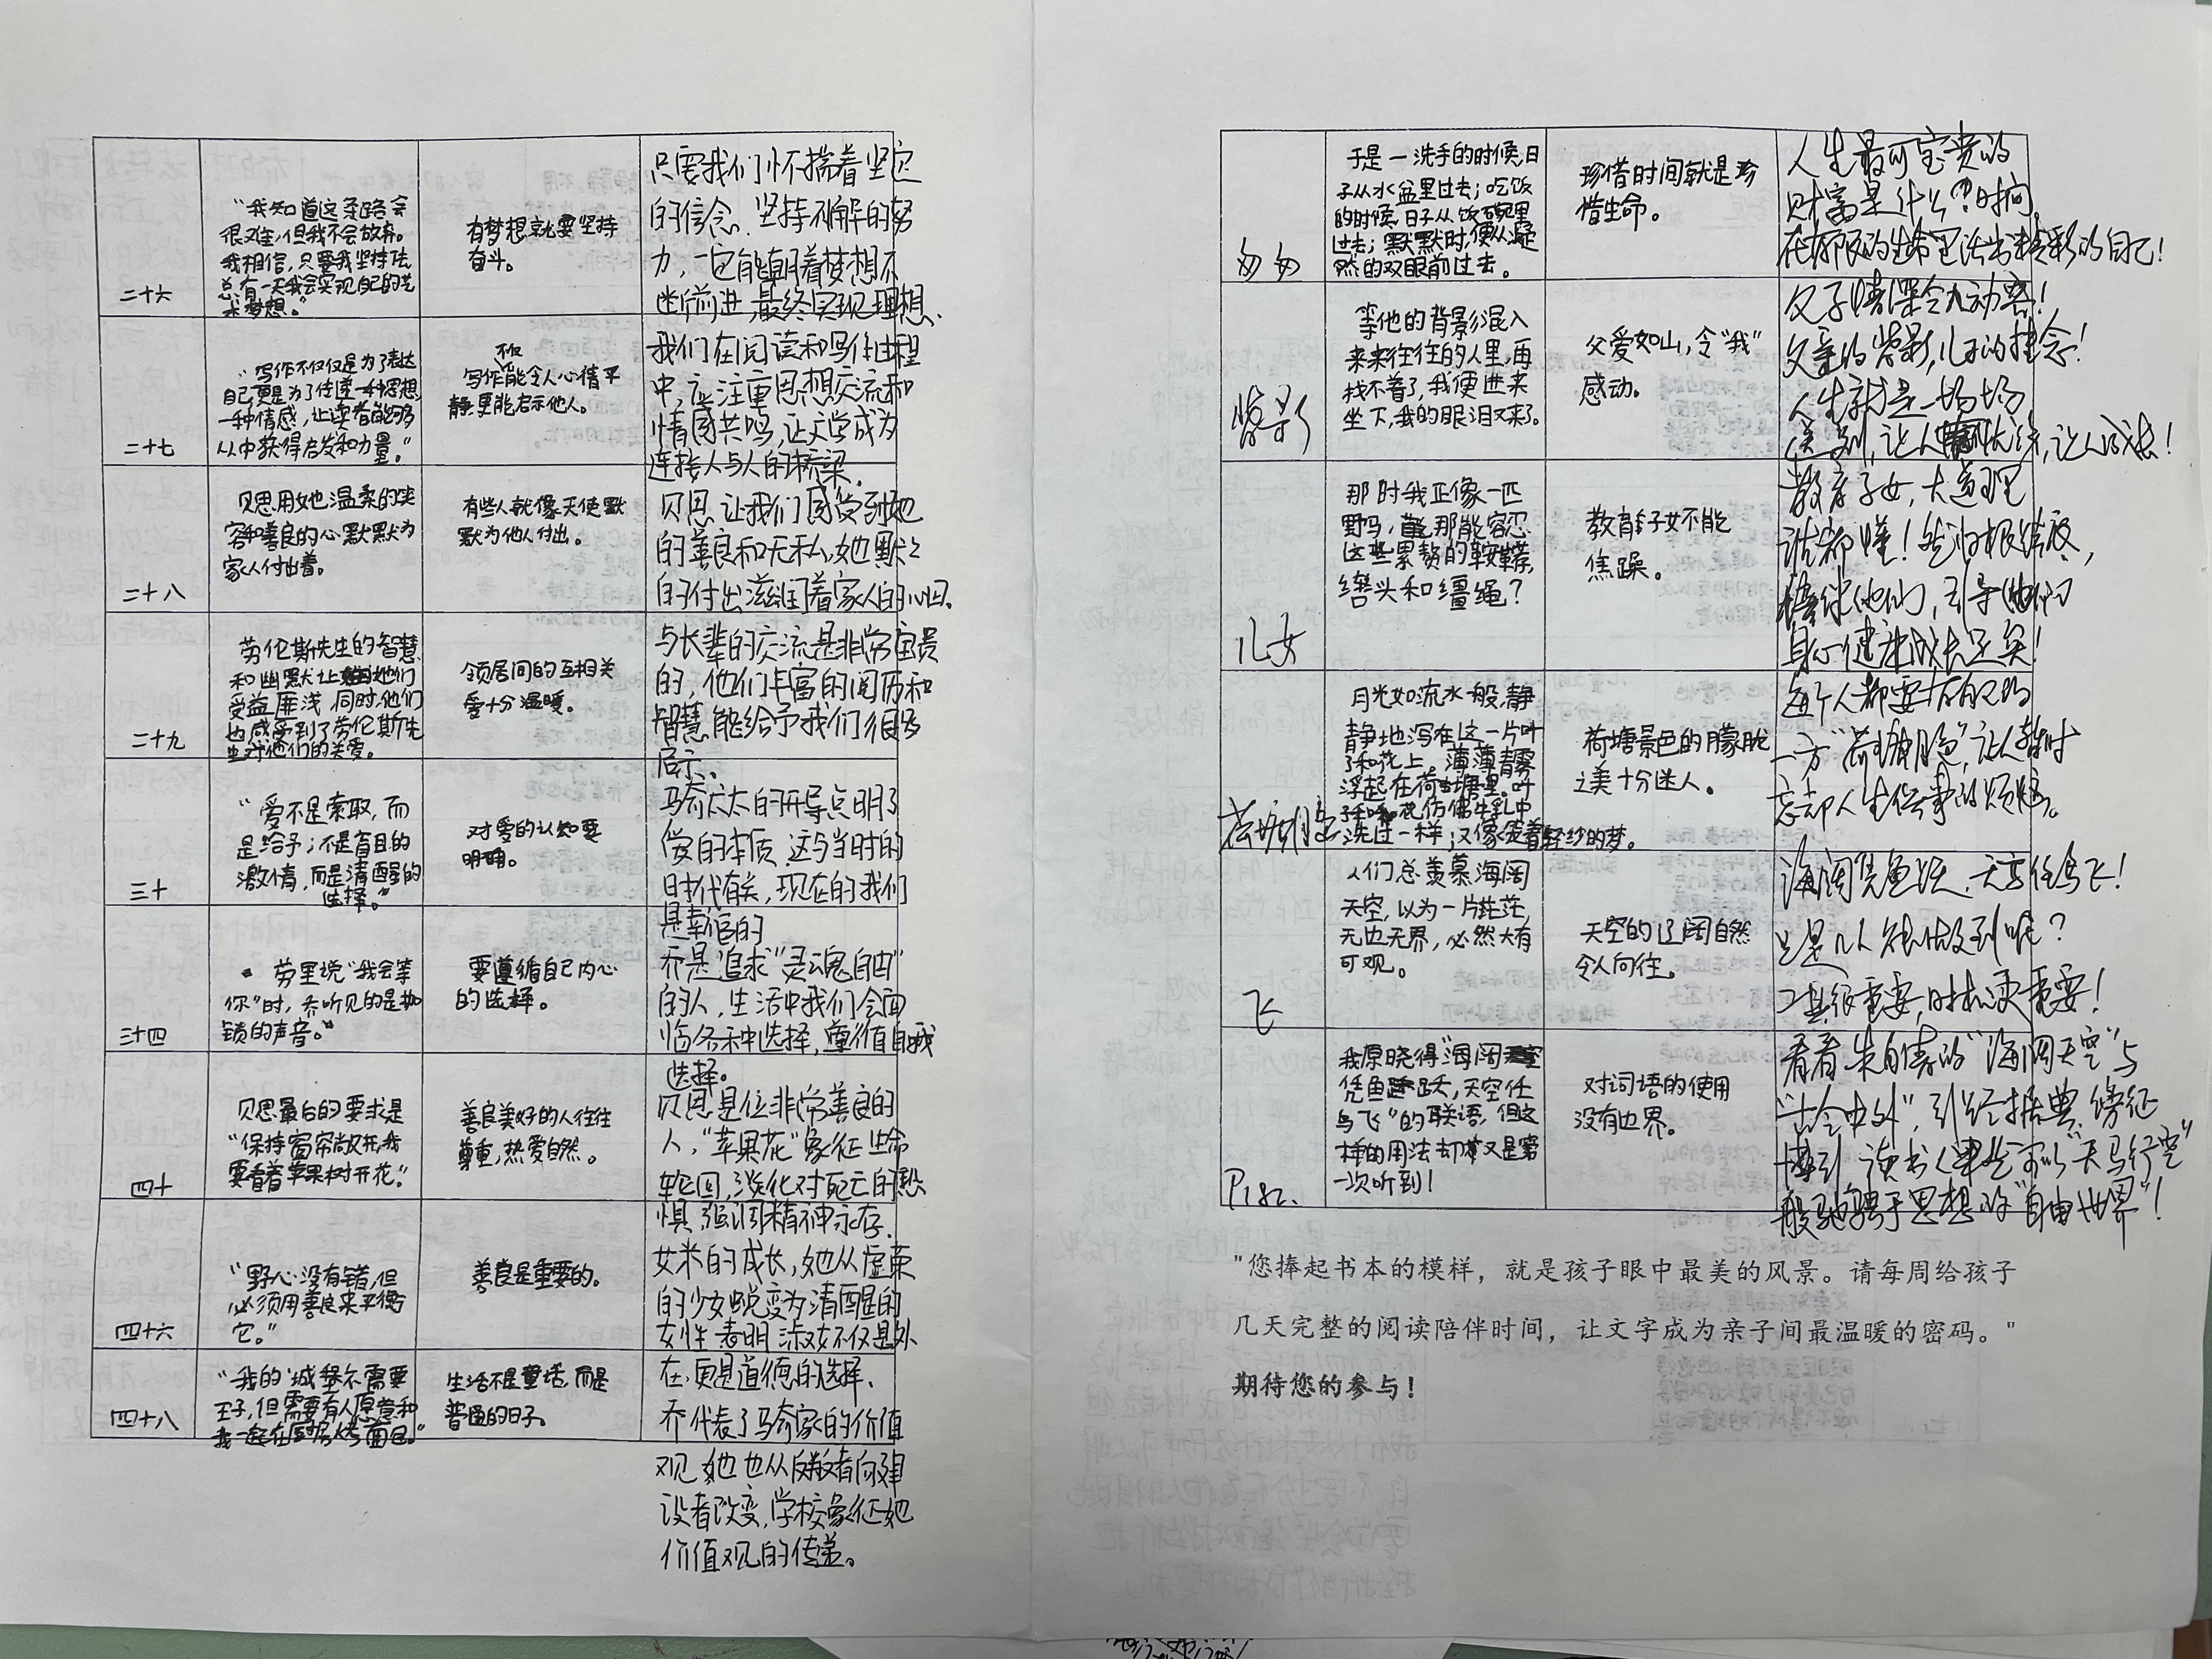 二十六
"我知道这条路会
很难,但我不会放弃。
我相信,只要我坚持下去,
总有一天我会实现自己的
梦想。"
有梦想就要坚持
奋斗。
只要我们怀揣着坚定
的信念、坚持不懈的努
力,一定能朝着梦想不
断前进,最终实现理想、
二十七
"写作不仅仅是为了表达
自己,更是为了传递一种思想,
一种情感,让读者能够
从中获得启发和力量。"
不仅
写作能令人心情平
静,更能启示他人。
我们在阅读和写作过程
中,应注重思想交流和
情感共鸣,让文学成为
连接人与人的桥梁。
二十八
贝思用她温柔的笑
容和善良的心默默为
家人付出着。
有些人就像天使默
默为他人付出。
贝思让我们感受到她
的善良和无私,她默々
的付出滋润着家人的心田、
二十九
劳伦斯先生的智慧
和幽默让她们
受益匪浅,同时,他们
也感受到了劳伦斯先
生对他们的关爱。
领居间的互相关
爱十分温暖。
与长辈的交流是非常宝贵
的,他们丰富的阅历和
智慧能给予我们很多
启示、
三十
"爱不是索取,而
是给予;不是盲目的
激情,而是清醒的
选择。"
对爱的认知要
明确。
马奇太太的开导点明了
爱的本质,这与当时的
时代有关,现在的我们
是幸福的
三十四
劳里说"我会等
你"时,乔听见的是枷
锁的声音。"
要遵循自己内心
的选择。
乔是追求"灵魂自由"
的人,生活中我们会面
临各种选择,尊重自我
选择。
四十
贝思最后的要求是
"保持窗帘敞开,我
要看着苹果树开花。"
善良美好的人往往
尊重,热爱自然。
贝思是位非常善良的
人,"苹果花"象征生命
轮回,淡化对死亡的恐
惧,强调精神永存、
四十六
"野心没有错,但
必须用善良来平衡
它。"
善良是重要的。
艾米的成长,她从虚荣
的少女蜕变为清醒的
女性,表明淑女不仅是外
在,更是道德的选择、
四十八
"我的'城堡'不需要
王子,但需要有人愿意和
我一起在厨房烤面包。"
生活不是童话,而是
普通的日子。
乔代表了马奇家的价值
观,她也从反叛者向建
设者改变,学校象征她
价值观的传递。
匆匆
于是一洗手的时候,日
子从水盆里过去;吃饭
的时候,日子从饭碗里
过去;默默时,便从凝
然的双眼前过去。
珍惜时间就是珍
惜生命。
人生最可宝贵的
财富是什么?时间
在有限的生命里活出精彩的自己!
背影
等他的背影混入
来来往往的人里,再
找不着了,我便进来
坐下,我的眼泪又来了。
父爱如山,令"我"
感动。
父子情深令人动容!
父亲的背影,儿子的挂念!
人生就是一场场
送别,让人成长!
儿女
那时我正像一匹
野马,那能容忍
这些累赘的鞍鞯,
辔头和缰绳?
教育子女不能
焦躁。
教育子女,大道理
谁都懂!
陪伴他们,引导他们
身心健康成长足矣!
荷塘月色
月光如流水一般,静
静地泻在这一片叶
子和花上。薄薄的青雾
浮起在荷塘里。叶
子和花仿佛牛乳中
洗过一样;又像笼着轻纱的梦。
荷塘景色的朦胧
之美十分迷人。
每个人都要有自己的
一方"荷塘月色",让人暂时
忘却人生俗事的烦恼。
飞
人们总羡慕海阔
天空,以为一片茫茫,
无边无界,必然大有
可观。
天空的辽阔自然
令人向往。
海阔凭鱼跃,天高任鸟飞!
只是几人能做到呢?
工具很重要,时机更重要!
P182.
我原晓得"海阔
凭鱼跃,天空任
鸟飞"的联语,但这
样的用法却又是第
一次听到!
对词语的使用
没有边界。
看看朱自清的"海阔天空"与
"古今中外",引经据典,旁征
博引,读书人毕竟可以"天马行空"
般驰骋于思想的"自由世界"!
"您捧起书本的模样，就是孩子眼中最美的风景。请每周给孩子
几天完整的阅读陪伴时间，让文字成为亲子间最温暖的密码。"
期待您的参与！